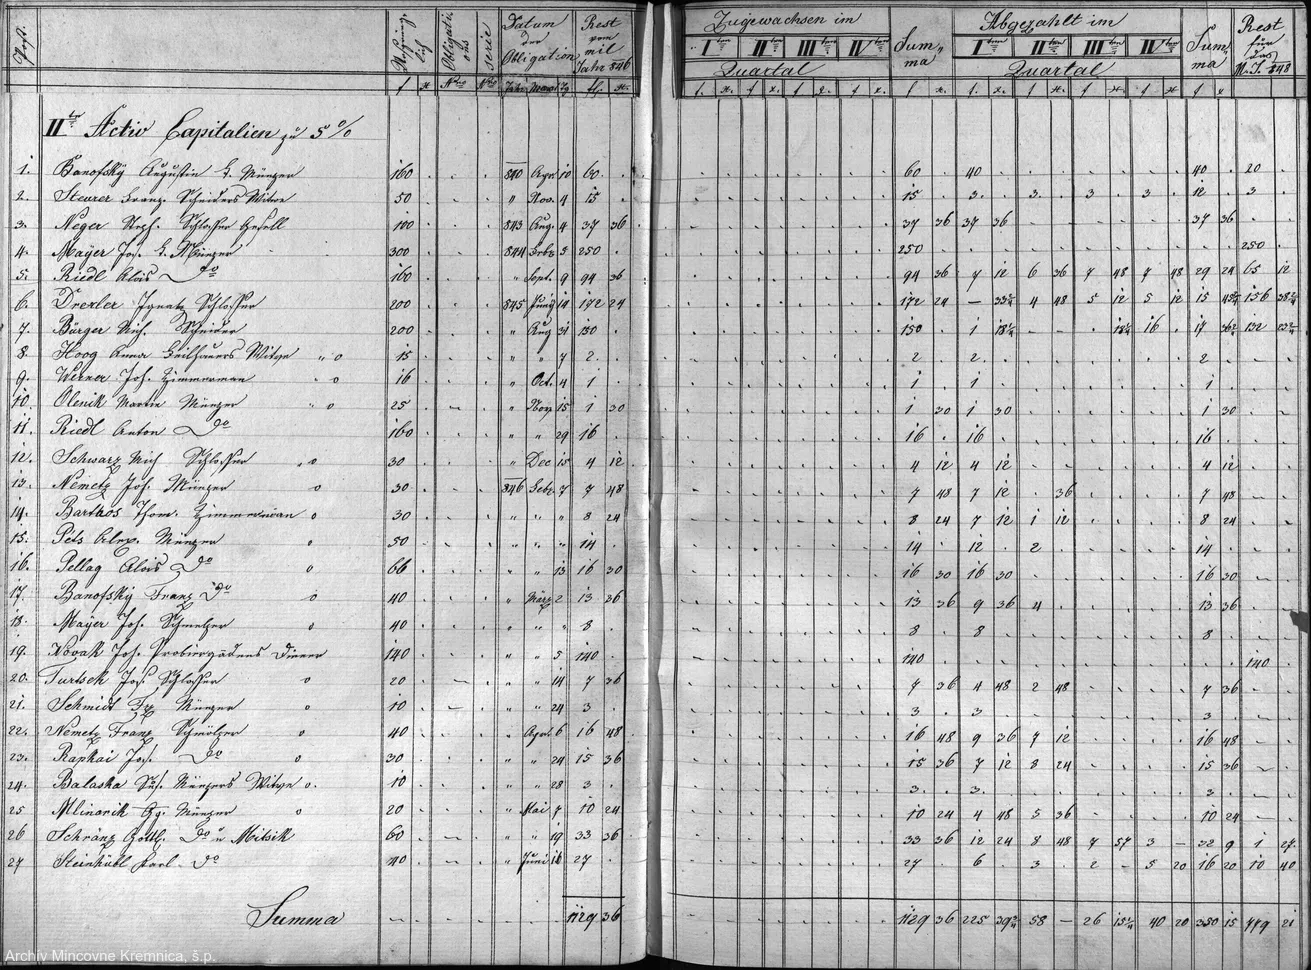 Post. Ursprüng- lich Obligati- ons Serie Datum der Obligation Rest vom mil Jahr 846 Zugewachsen im Sum- ma Abgezahlt im Sum- ma Rest für das M. J. 848
Iten IIten IIIten IVten Iten IIten IIIten IVten
Quartal Quartal
f x Nro Nro Jahr Monat Tg f x f. x. f. x. f. x. f. x. f x. f. x f x. f x. f x. f x
IIte Activ Capitalien zu 5%
1. Banofský Augustin k. Münzer 160 840 Apr 10 60 60 40 40 20
2. Steurer Franz Schneiders Witwe 50 " Nov. 4 15 15 3 3 3 3 12 3
3. Neger Schlosser Gesell 100 843 Aug. 4 37 36 37 36 37 36 37 36
4. Mayer Jos. k. Münzer 300 844 Feb. 5 250 250 250
5. Riedl Alois do 160 " Sept. 9 94 36 94 36 7 12 6 36 7 48 7 48 29 24 65 12
6. Drexler Ignatz Schlosser 200 845 Juny 14 172 24 172 24 4 48 5 12 5 12 15 156
7. Bürger Mich. Schneider 200 " Aug 31 150 150 1 16 17 132
8. Hoog Anna Witwe " o 15 " " 7 2 2 2 2
9. Werner Joh. Zimmerman " o 16 " Oct. 4 1 1 1 1
10. Olenik Martin Münzer " o 25 " Nov 15 1 30 1 30 1 30 1 30
11. Riedl Anton do 160 " " 29 16 16 16 16
12. Schwarz Mich Schlosser " o 30 " Dec 15 4 12 4 12 4 12 4 12
13. Nemetz Joh. Münzer o 30 846 Feb. 7 7 48 7 48 7 12 36 7 48
14. Barthos Thom. Zimmerman o 30 " " " 8 24 8 24 7 12 1 12 8 24
15. Péts Alex. Münzer o 50 " " " 14 14 12 2 14
16. Pellag Alois do o 66 " " 13 16 30 16 30 16 30 16 30
17. Banofský Franz do o 40 " März 2 13 36 13 36 9 36 4 13 36
18. Mayer Joh. Schmelzer o 40 " " " 8 8 8 8
19. Novak Joh. Probiergadens Diener 140 " " 5 140 140 140
20. Turtsek Jos. Schlosser o 20 " " 14 7 36 7 36 4 48 2 48 7 36
21. Schmidt Fz Münzer o 10 " " 24 3 3 3 3
22. Nemetz Franz Schmölzer o 40 " Apr. 6 16 48 16 48 9 36 7 12 16 48
23. Rapkai Jos. do o 30 " " 24 15 36 15 36 7 12 8 24 15 36
24. Balaska Münzers Witwe o. 10 " " 28 3 3 3 3
25 Mlinarik Münzer o 20 " Mai 7 10 24 10 24 4 48 5 36 10 24
26 Schränz Gottl. do u Mitsik 60 " " 19 33 36 33 36 12 24 8 48 7 57 3 32 9 1 27
27 Steinhübl Karl do 40 " Juni 16 27 27 6 3 2 5 20 16 20 10 40
Summa 1129 36 1129 36 225 58 26 40 20 350 15 779 21
Archív Mincovne Kremnica, š.p.